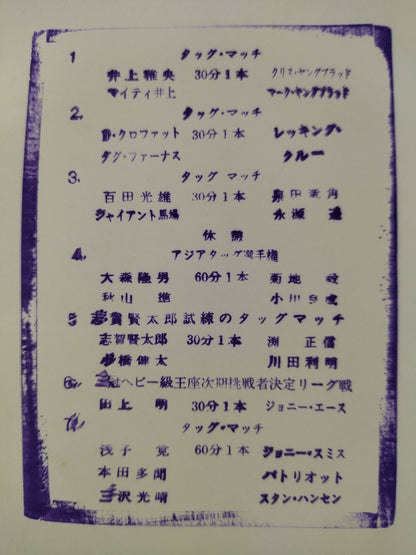 1 タッグ・マッチ
井上雅央 30分1本 クリス・ヤングブラッド
マイティ井上 マーク・ヤングブラッド
2. タッグ・マッチ
D・クロファット 30分1本 レッキング・
ダグ・ファーナス クルー
3. タッグ マッチ
百田光雄 30分1本 泉田竜角
ジャイアント馬場 永源遥
休憩
4. アジアタッグ選手権
大森隆男 60分1本 菊地毅
秋山準 小川良成
5 志賀賢太郎試練のタッグマッチ
志賀賢太郎 30分1本 渕正信
小橋健太 川田利明
6. 三冠ヘビー級王座次期挑戦者決定リーグ戦
田上明 30分1本 ジョニー・エース
7. タッグ・マッチ
浅子覚 60分1本 ジョニー・スミス
本田多聞 パトリオット
三沢光晴 スタン・ハンセン